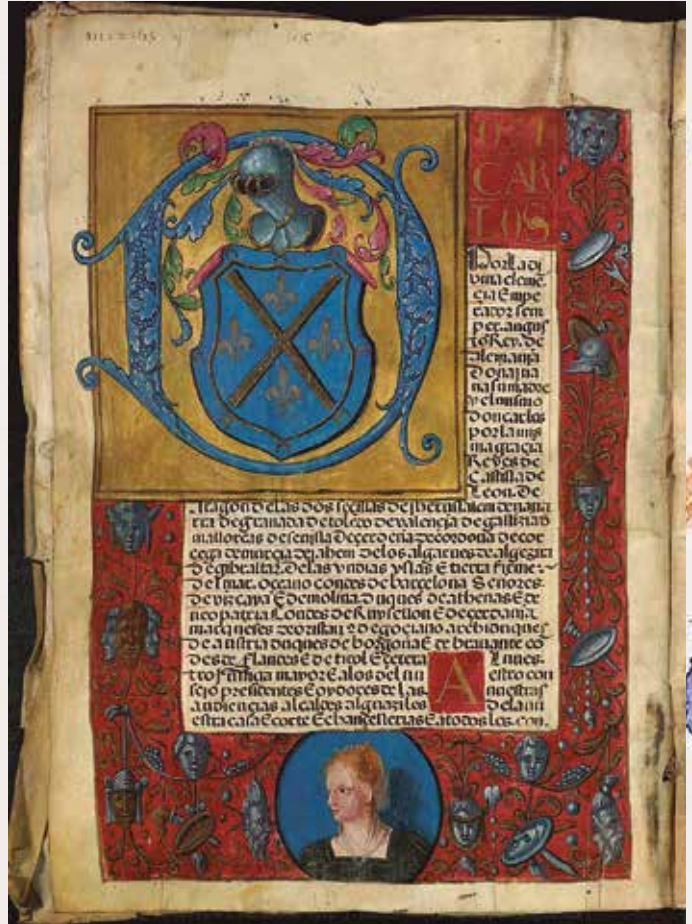 CAR
LOS
Por la di
vina cleme͂
cia Empe
rador sem
per. augus
to Rey. de
alemania
Dona jua
na su madre
y el mismo
don carlos
por la mis
ma gracia
Reyes de
Castilla de
Leon. De
Aragon de las dos secilias de jherusalem de nava
rra de granada de toledo de valencia de gallizia d
mallorcas de sevilla de cerdeña de cordova de cor
cega de murcia de jahem de los algarues de algezira
de gibraltar. de las yndias yslas E tierra firme
del mar. oceano condes de barcelona Señores.
de vizcaya E de molina duques de athenas E de
neopatria Condes de Ruysellon E de cerdania
marqueses de oristan z de gociano archiduques
de austria duques de borgoña E de bravante co͂
des de flandes E de tirol Ecetera Al nues
tro justicia mayor E a los del nuestro con
sejo presidentes E oydores de las nuestras
audiencias alcaldes alguaziles de la nu
estra casa E corte E chancellerias E a todos los con